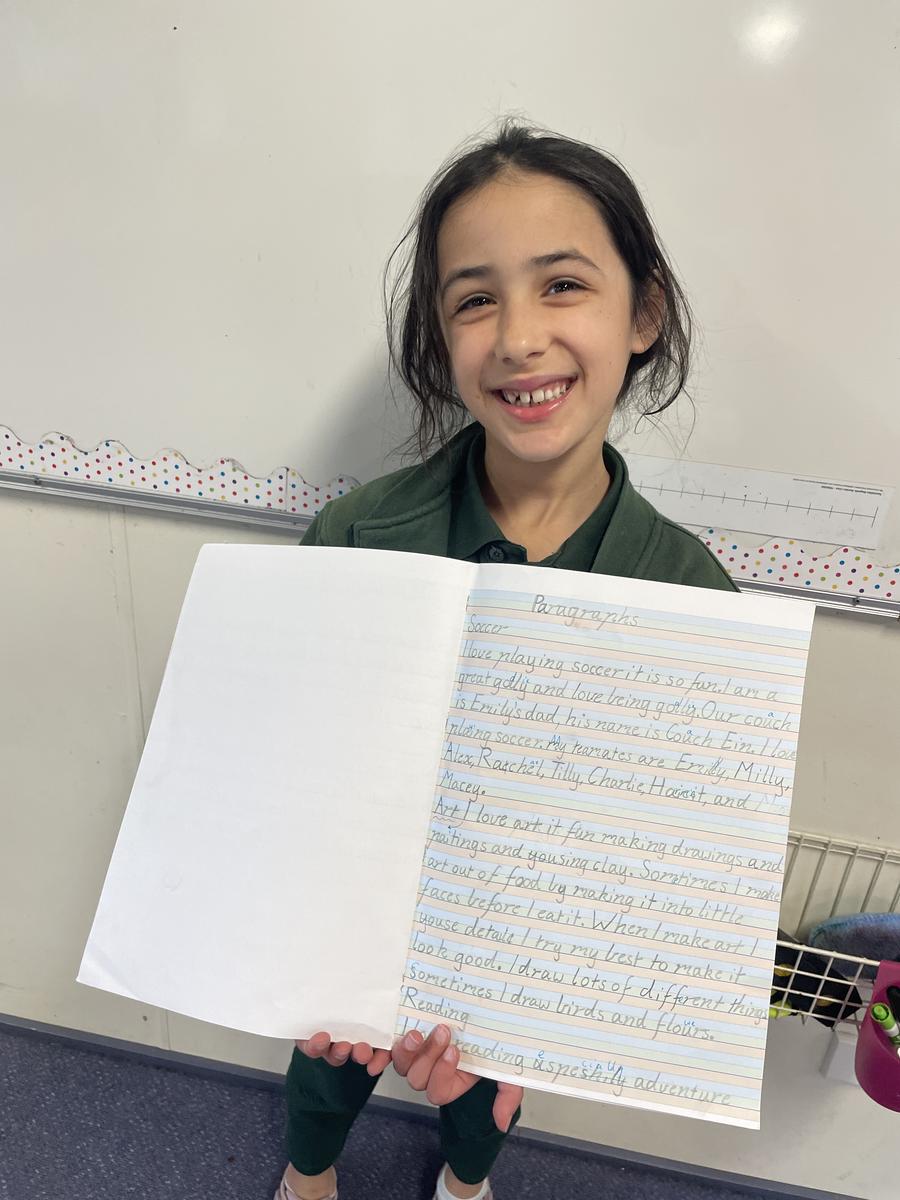 Paragraphs
Soccer
I love playing soccer it is so fun. I am a
great golly and love being golly. Our coach
is Emily's dad, his name is Coach Ein. I love
plaing soccer. My teamates are Emily, Milly,
Alex, Ratchel, Tilly, Charlie, and
Macey.
Art I love art it fun making drawings and
paitings and yousing clay. Sometimes I make
art out of food by making it into little
faces before I eat it. When I make art I
youse details I try my best to make it
look good. I draw lots of different things
Sometimes I draw birds and flours.
Reading
reading adventure